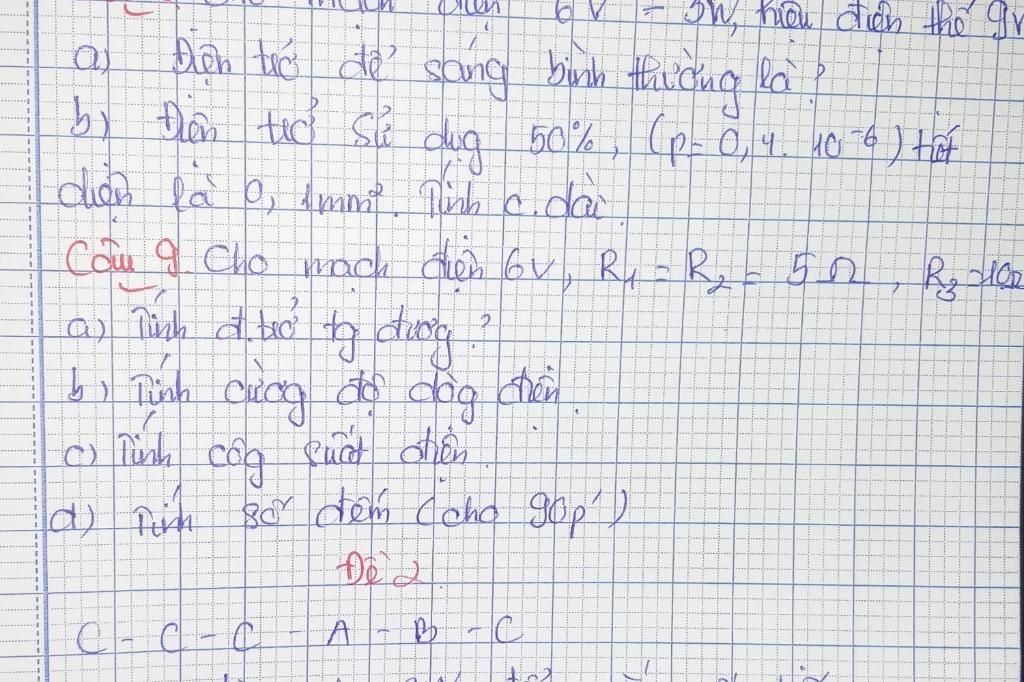 mạch điện 6V - 3W, hiệu điện thế 9V
a) Điện trở để sáng bình thường là?
b) Điện trở sử dụg 50%, (p= 0,4. 10⁻⁶) tiết
diện là 0,1mm². Tính c.dài
Câu 9 Cho mạch điện 6V, R₁ = R₂ = 5Ω, R₃=10Ω
a) Tính đ.trở tg đươg?
b) Tính cườg độ dòg điện.
c) Tính côg suất điện
d) Tính số đếm (cho 90p')
Đề 2
C - C - C - A - B - C